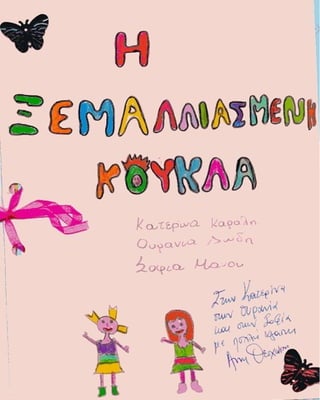 Η
ΞΕΜΑΛΛΙΑΣΜΕΝΗ
ΚΟΥΚΛΑ
Κατερινα Καφάλη
Ουρανια Δωδη
Σοφια Μανου
Στην Κατερίνα
στην Ουρανία
και στην Σοφία
με πολλή αγάπη